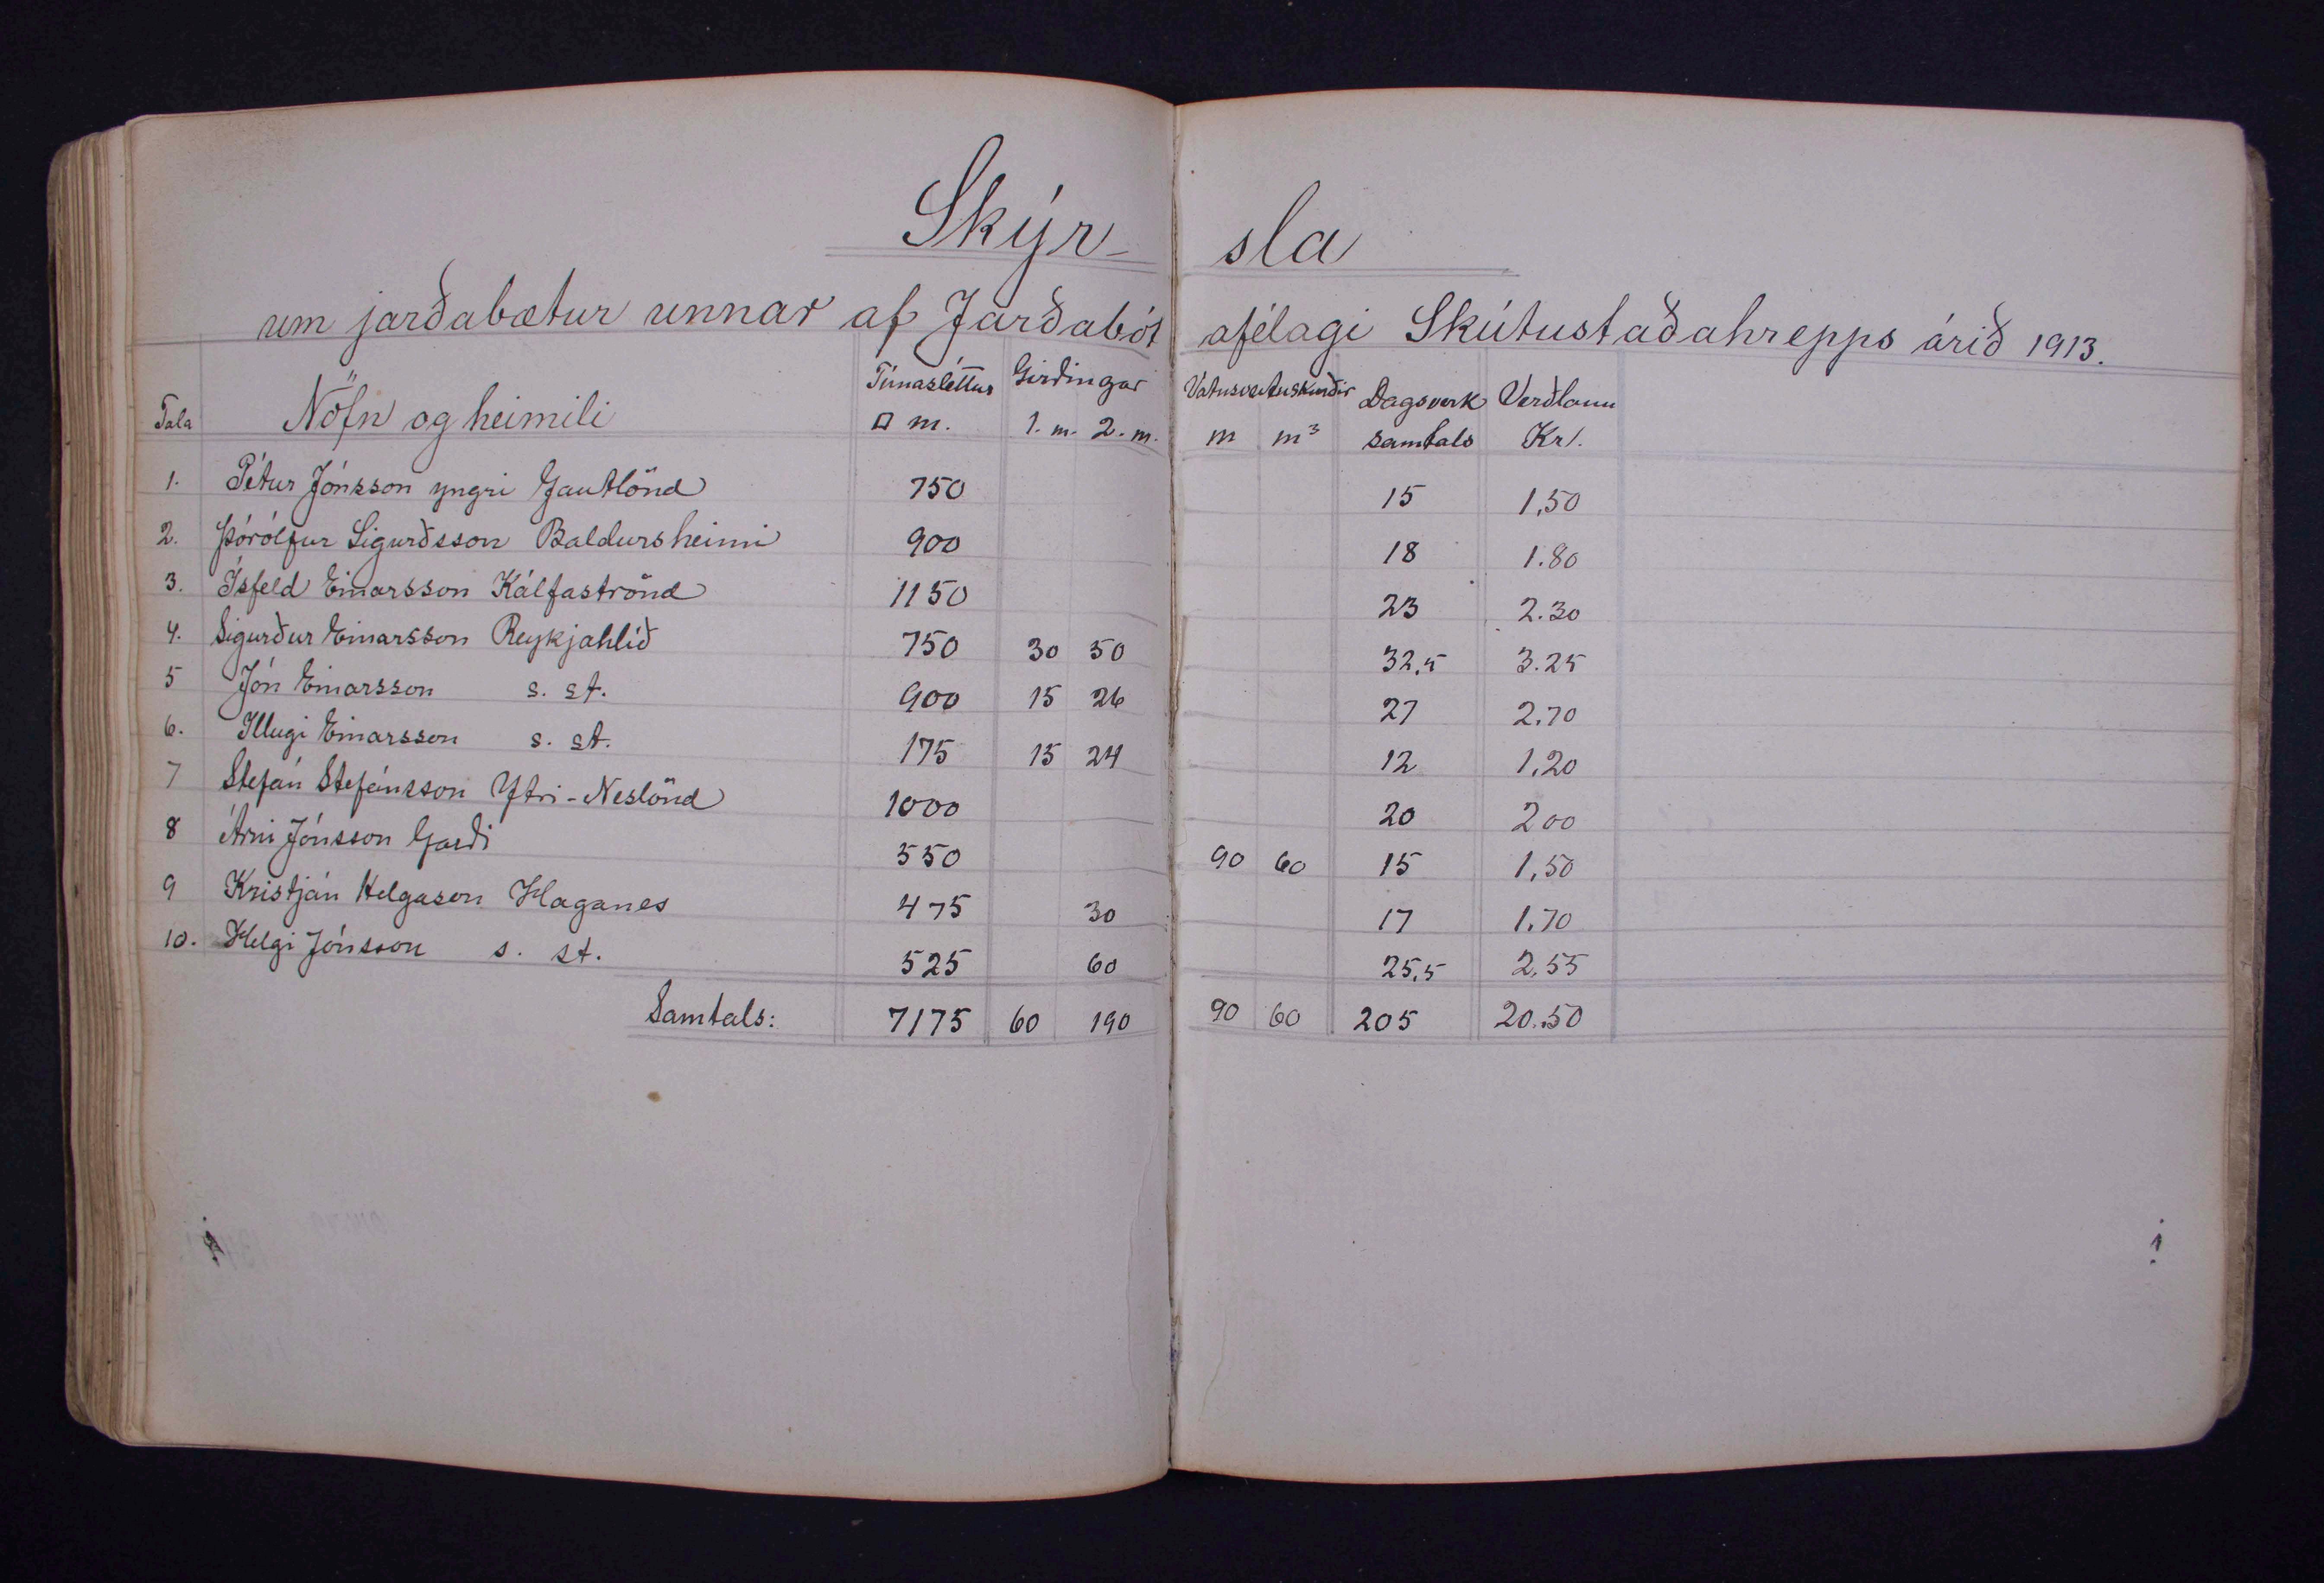 Skýr-sla
um jarðabætur unnar af Jarðabótafélagi Skútustaðahrepps árið 1913.
Tala Nöfn og heimili Túnasléttur □ m. Girðingar 1. m. 2. m. Vatnsveituskurðir m m³ Dagsverk samtals Verðlaun Kr.
1. Pétur Jónsson yngri Gautlönd 750 15 1,50
2. Þórólfur Sigurðsson Baldursheimi 900 18 1.80
3. Ísfeld Einarsson Kálfaströnd 1150 23 2.30
4. Sigurður Einarsson Reykjahlíð 750 30 50 32,5 3.25
5 Jón Einarsson s. st. 900 15 26 27 2.70
6. Illugi Einarsson s. st. 175 15 24 12 1,20
7 Stefán Stefánsson Ytri-Neslönd 1000 20 2 00
8 Árni Jónsson Garði 550 90 60 15 1,50
9 Kristján Helgason Haganes 475 30 17 1.70
10. Helgi Jónsson s. st. 525 60 25,5 2,55
Samtals: 7175 60 190 90 60 205 20.50